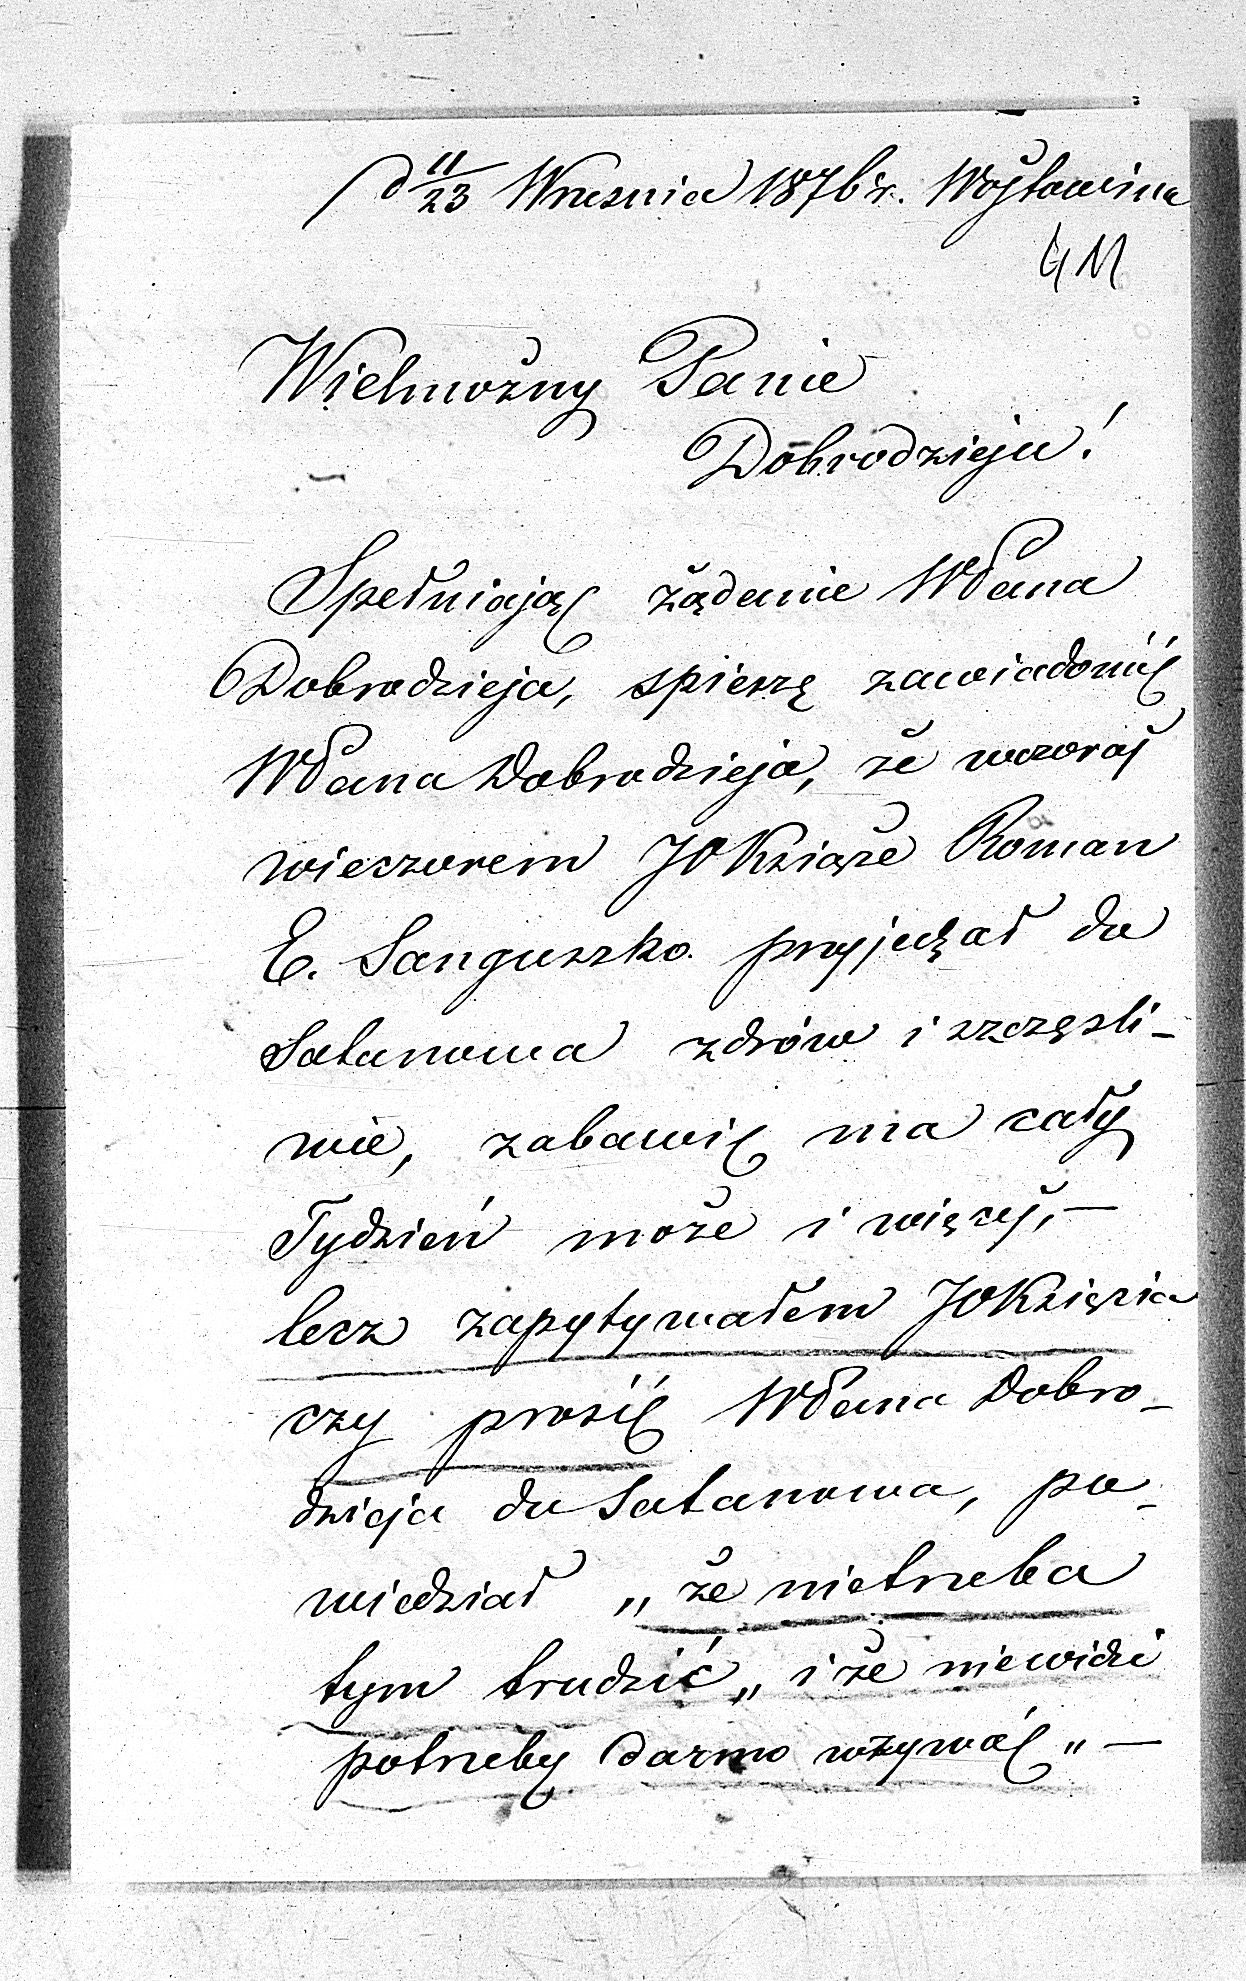 d 11/23 Wrzesnia 1876 r. Wojtowina
411
Wielmożny Panie
Dobrodzieju!
Spełniając żądanie WPana
Dobrodzieja, spieszę zawiadomić
WPana Dobrodzieja, że wczoraj
wieczorem JO Książe Roman
E. Sanguszko przyjechał do
Satanowa zdrów i szczęśli-
wie, zabawić ma cały
Tydzień może i więcej, —
lecz zapytywałem JOKsięcia
czy prosić WPana Dobro-
dzieja do Satanowa, po-
wiedział „że nietrzeba
tym trudzić„ i że niewidzi
potrzeby darmo wzywać" —